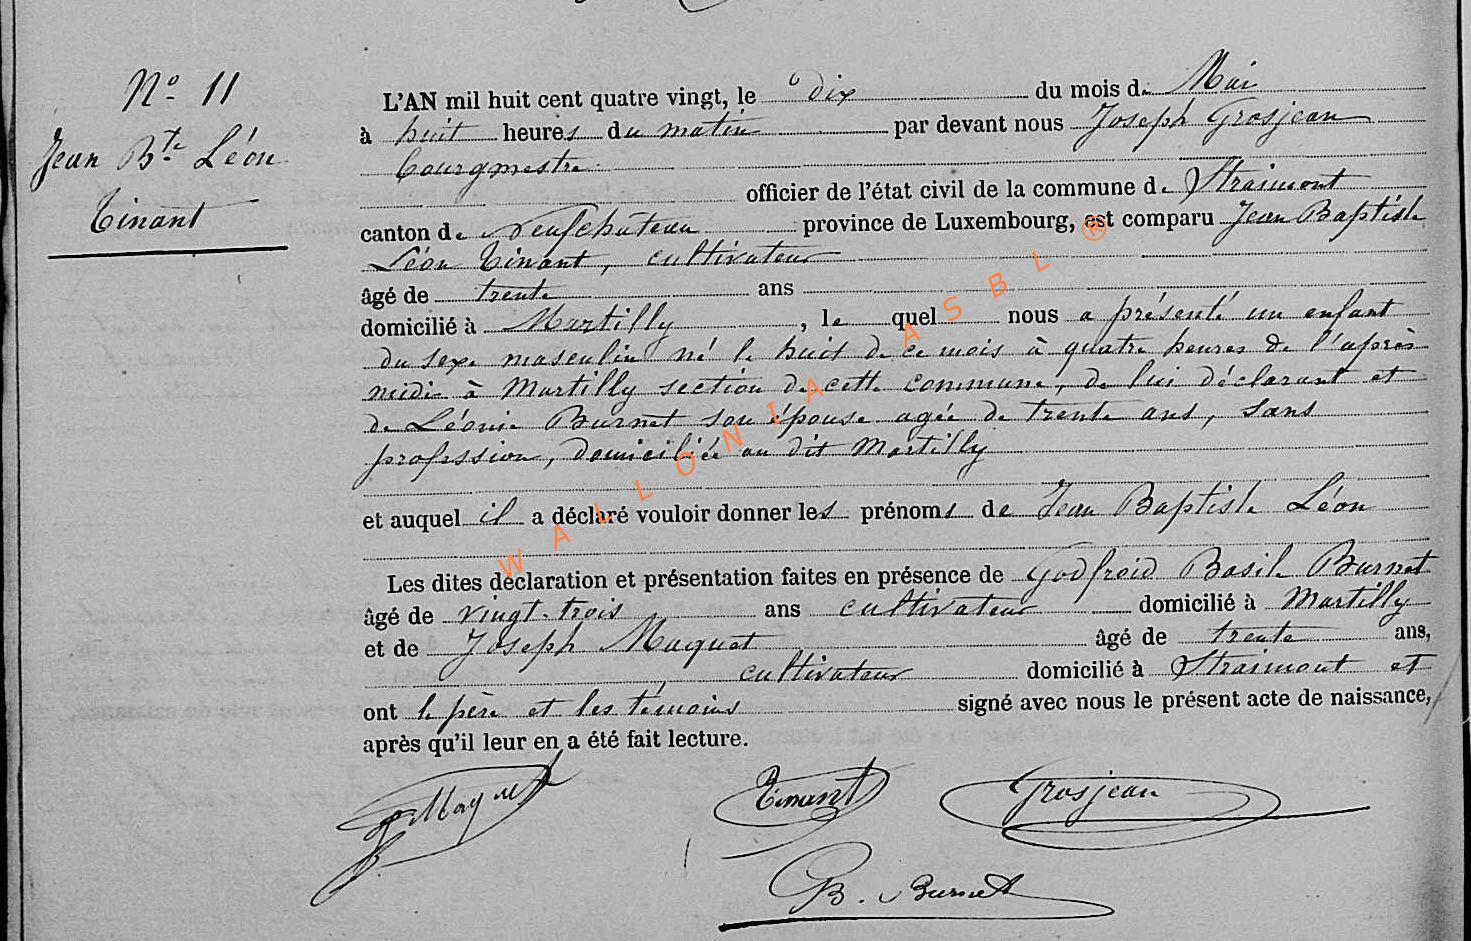 N° 11
Jean Bte Léon
Tinant
L'AN mil huit cent quatre vingt, le dix du mois de Mai
à huit heures du matin par devant nous Joseph Grosjean
bourgmestre
officier de l'état civil de la commune de Straimont
canton de Neufchateau province de Luxembourg, est comparu Jean Baptiste
Léon Tinant, cultivateur
âgé de trente ans
domicilié à Martilly, le quel nous a présenté un enfant
du sexe masculin né le huit de ce mois à quatre heures de l'après
midi à Martilly section de cette commune, de lui déclarant et
de Léonie Burnet son épouse agée de trente ans, sans
profession, domiciliée au dit Martilly
et auquel il a déclaré vouloir donner les prénoms de Jean Baptiste Léon
Les dites déclaration et présentation faites en présence de Godfroid Basile Burnet
âgé de vingt-trois ans cultivateur domicilié à Martilly
et de Joseph Maquet âgé de trente ans,
cultivateur domicilié à Straimont et
ont le père et les témoins signé avec nous le présent acte de naissance,
après qu'il leur en a été fait lecture.
J. Maquet Tinant Grosjean
B. Burnet
WALLONIA ASBL ®